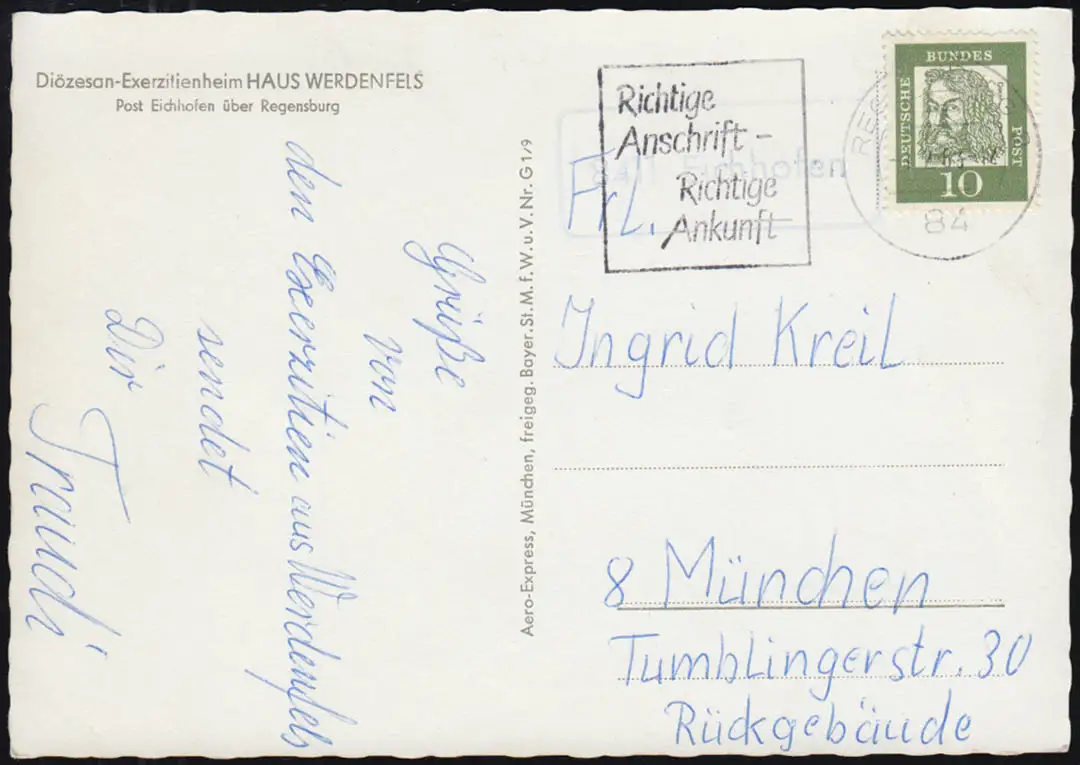 Diözesan-Exerzitienheim HAUS WERDENFELS
Post Eichhofen über Regensburg
Grüße
von
den Exerzitien aus Werdenfels
sendet
Dir
Traudi
Aero-Express, München, freigeg. Bayer. St. M. f. W. u. V. Nr. G 1/9
Richtige
Anschrift –
Richtige
Ankunft
Eichhofen
DEUTSCHE
BUNDES
POST
10
84
Frl.
Ingrid Kreil
8 München
Tumblingerstr. 30
Rückgebäude